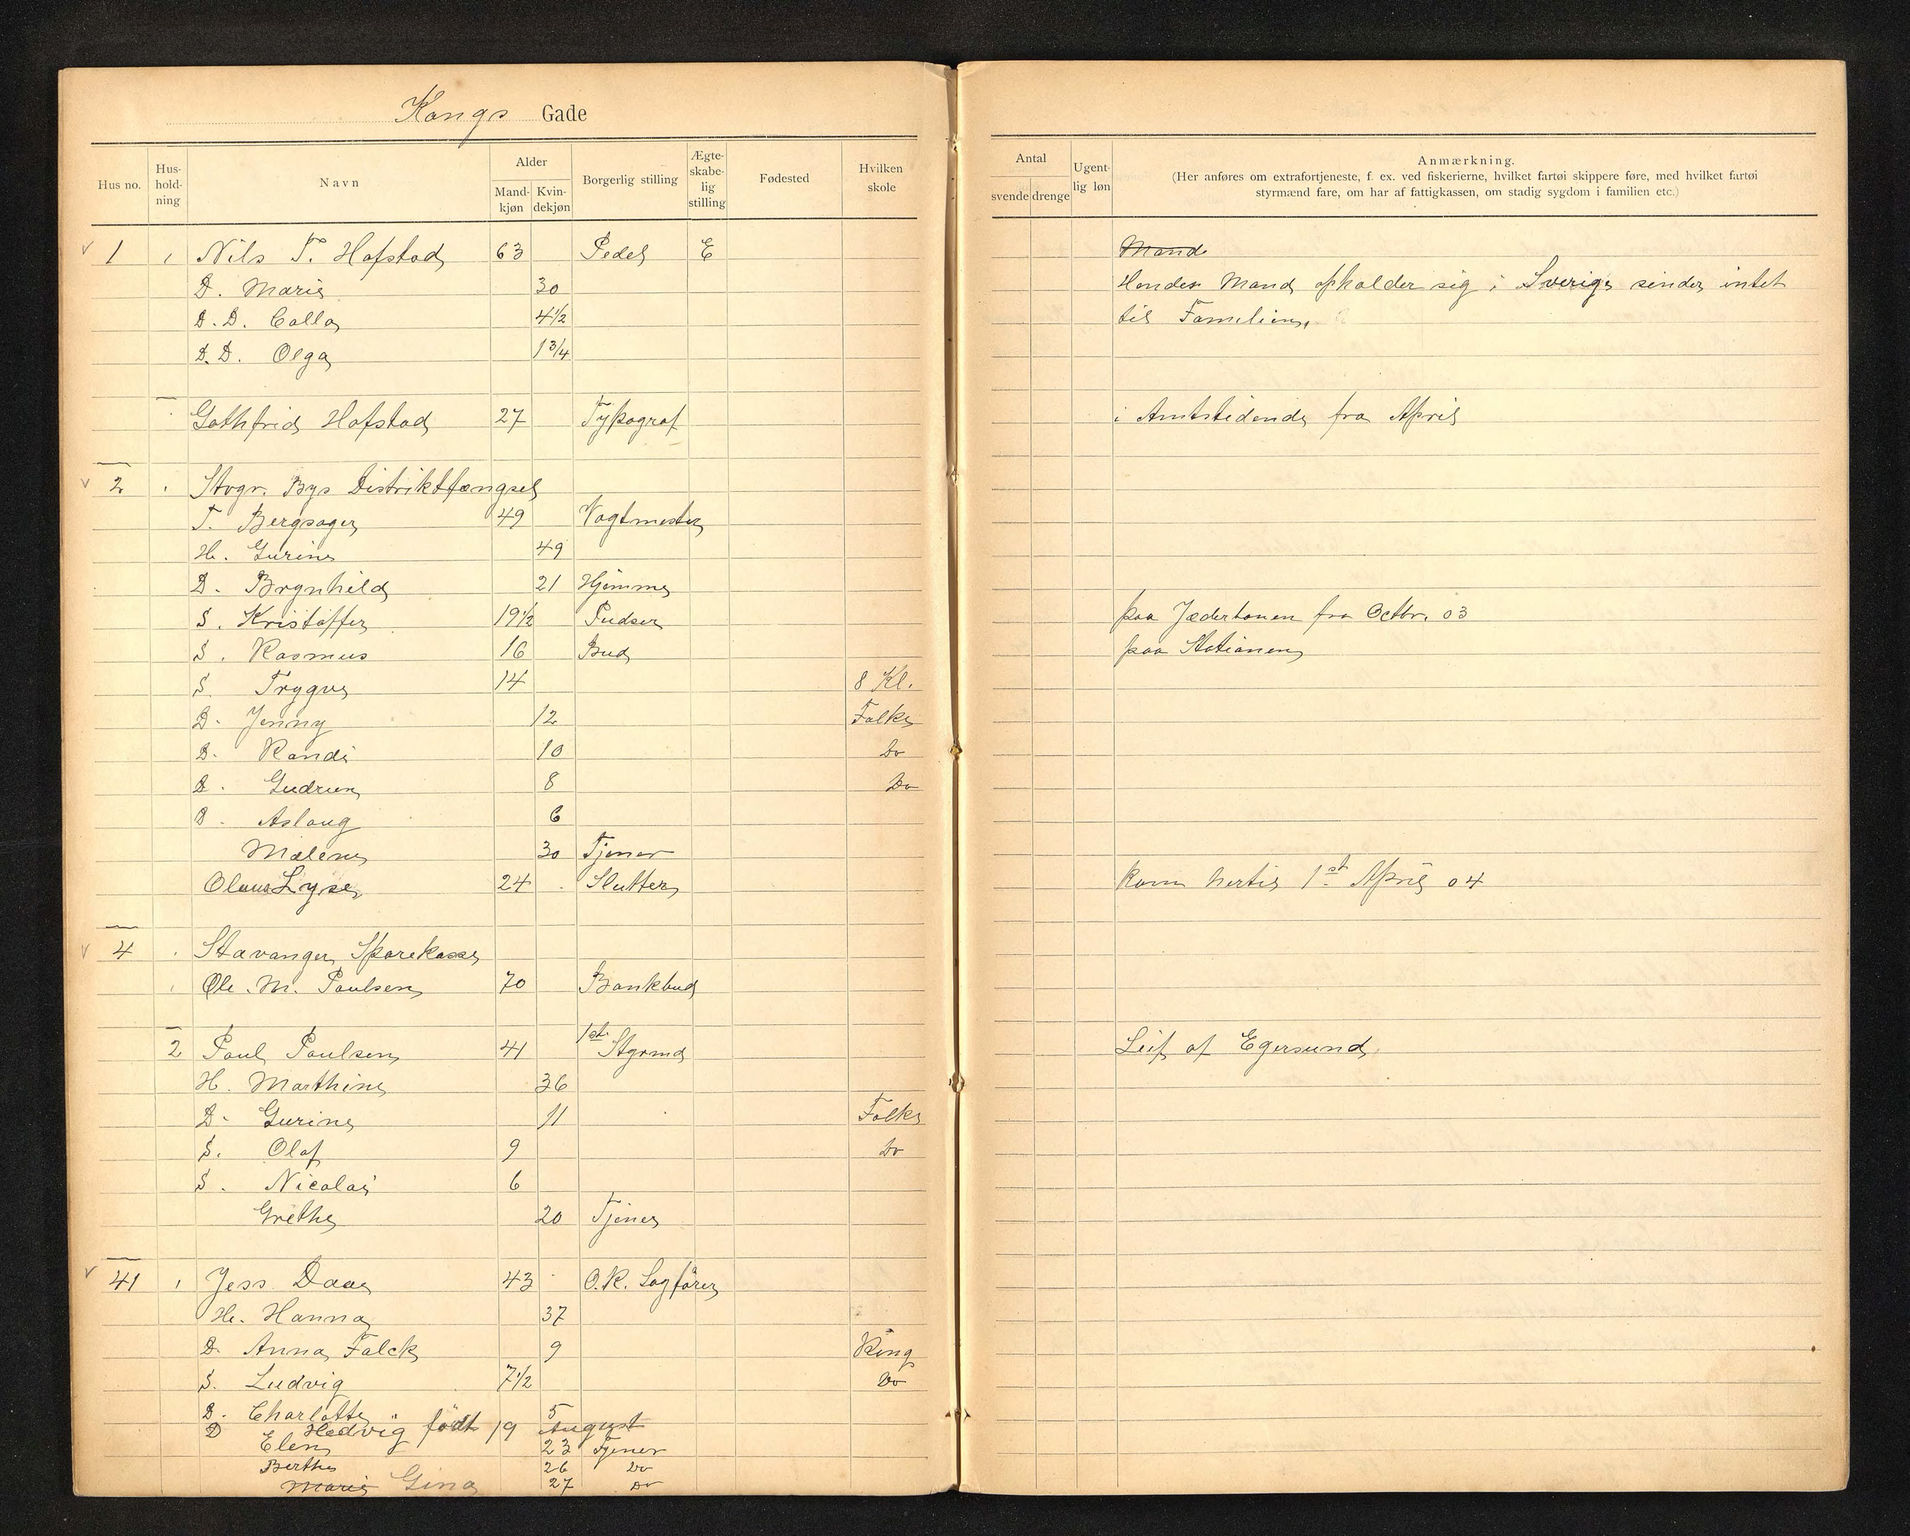 Kongs Gade
Hus no. Hus-hold-ning Navn Alder Mand-kjøn Kvin-dekjøn Borgerlig stilling Ægte-skabe-lig stilling Fødested Hvilken skole
Antal svende drenge Ugent-lig løn Anmærkning.
(Her anføres om extrafortjeneste, f. ex. ved fiskerierne, hvilket fartøi skippere føre, med hvilket fartøi
styrmænd fare, om har af fattigkassen, om stadig sygdom i familien etc.)
1 1 Nils T. Hofstad 63 Pedel E Mand
D. Marie 30 Hendes Mand opholder sig i Sverige sender intet
D.D. Calla 4 1/2 til Familien.
D.D. Olga 1 3/4
Gothfrid Hofstad 27 Typograf i Amtstidende fra April
2 Stvgr. Bys Distriktfængsel
T. Bergsager 49 Vagtmester
H. Gurine 49
D. Brynhild 21 Hjemme
S. Kristoffer 19 1/2 Pudser paa Jæderbanen fra Octbr. 03
S. Rasmus 16 Bud paa Stationen
S. Trygve 14 8 Kl.
D. Jenny 12 Folks
D. Randi 10 Do
D. Gudrun 8 Do
D. Aslaug 6
Malene 30 Tjener
Olaus Lyse 24 Slutter kom hertil 1st April 04
4 Stavanger Sparekasse
Ole M. Paulsen 70 Bankbud
2 Paul Paulsen 41 1st Styrmd Leif af Egersund
H. Marthine 36
D. Gurine 11 Folks
S. Olaf 9 Do
S. Nicolai 6
Grethe 20 Tjener
41 1 Jess Daae 43 O.R. Sagfører
H. Hanna 37
D. Anna Falck 9 Kong
S. Ludvig 7 1/2 Do
D. Charlotte 5
D Hedvig født 19 August
Elen 23 Tjener
Berthe 26 Do
Marie Gina 27 Do